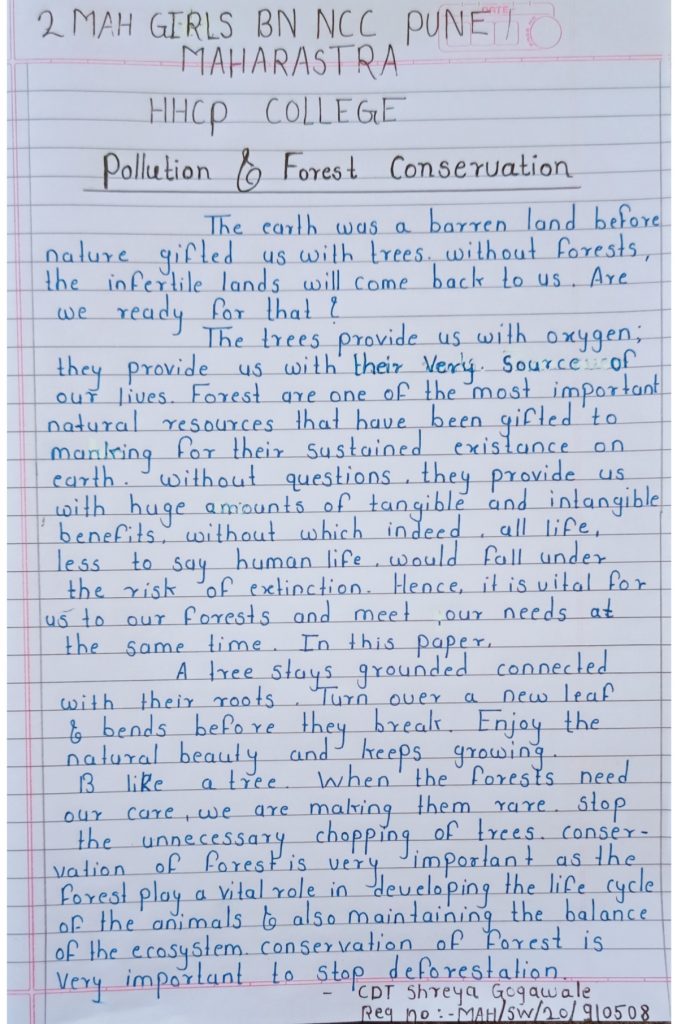 2 MAH GIRLS BN NCC PUNE /
MAHARASTRA
HHCP COLLEGE
Pollution & Forest Conservation
The earth was a barren land before
nature gifted us with trees. without forests,
the infertile lands will come back to us. Are
we ready for that ?
The trees provide us with oxygen;
they provide us with their very source of
our lives. Forest are one of the most important
natural resources that have been gifted to
manking for their sustained existance on
earth. Without questions, they provide us
with huge amounts of tangible and intangible
benefits, without which indeed, all life,
less to say human life, would fall under
the risk of extinction. Hence, it is vital for
us to our forests and meet our needs at
the same time. In this paper,
A tree stays grounded connected
with their roots. Turn over a new leaf
& bends before they break. Enjoy the
natural beauty and keeps growing.
B like a tree. When the forests need
our care, we are making them rare. stop
the unnecessary chopping of trees. conser-
vation of forest is very important as the
forest play a vital role in developing the life cycle
of the animals & also maintaining the balance
of the ecosystem. conservation of forest is
very important to stop deforestation.
- CDT Shreya Gogawale
Reg no :- MAH/SW/20/910508